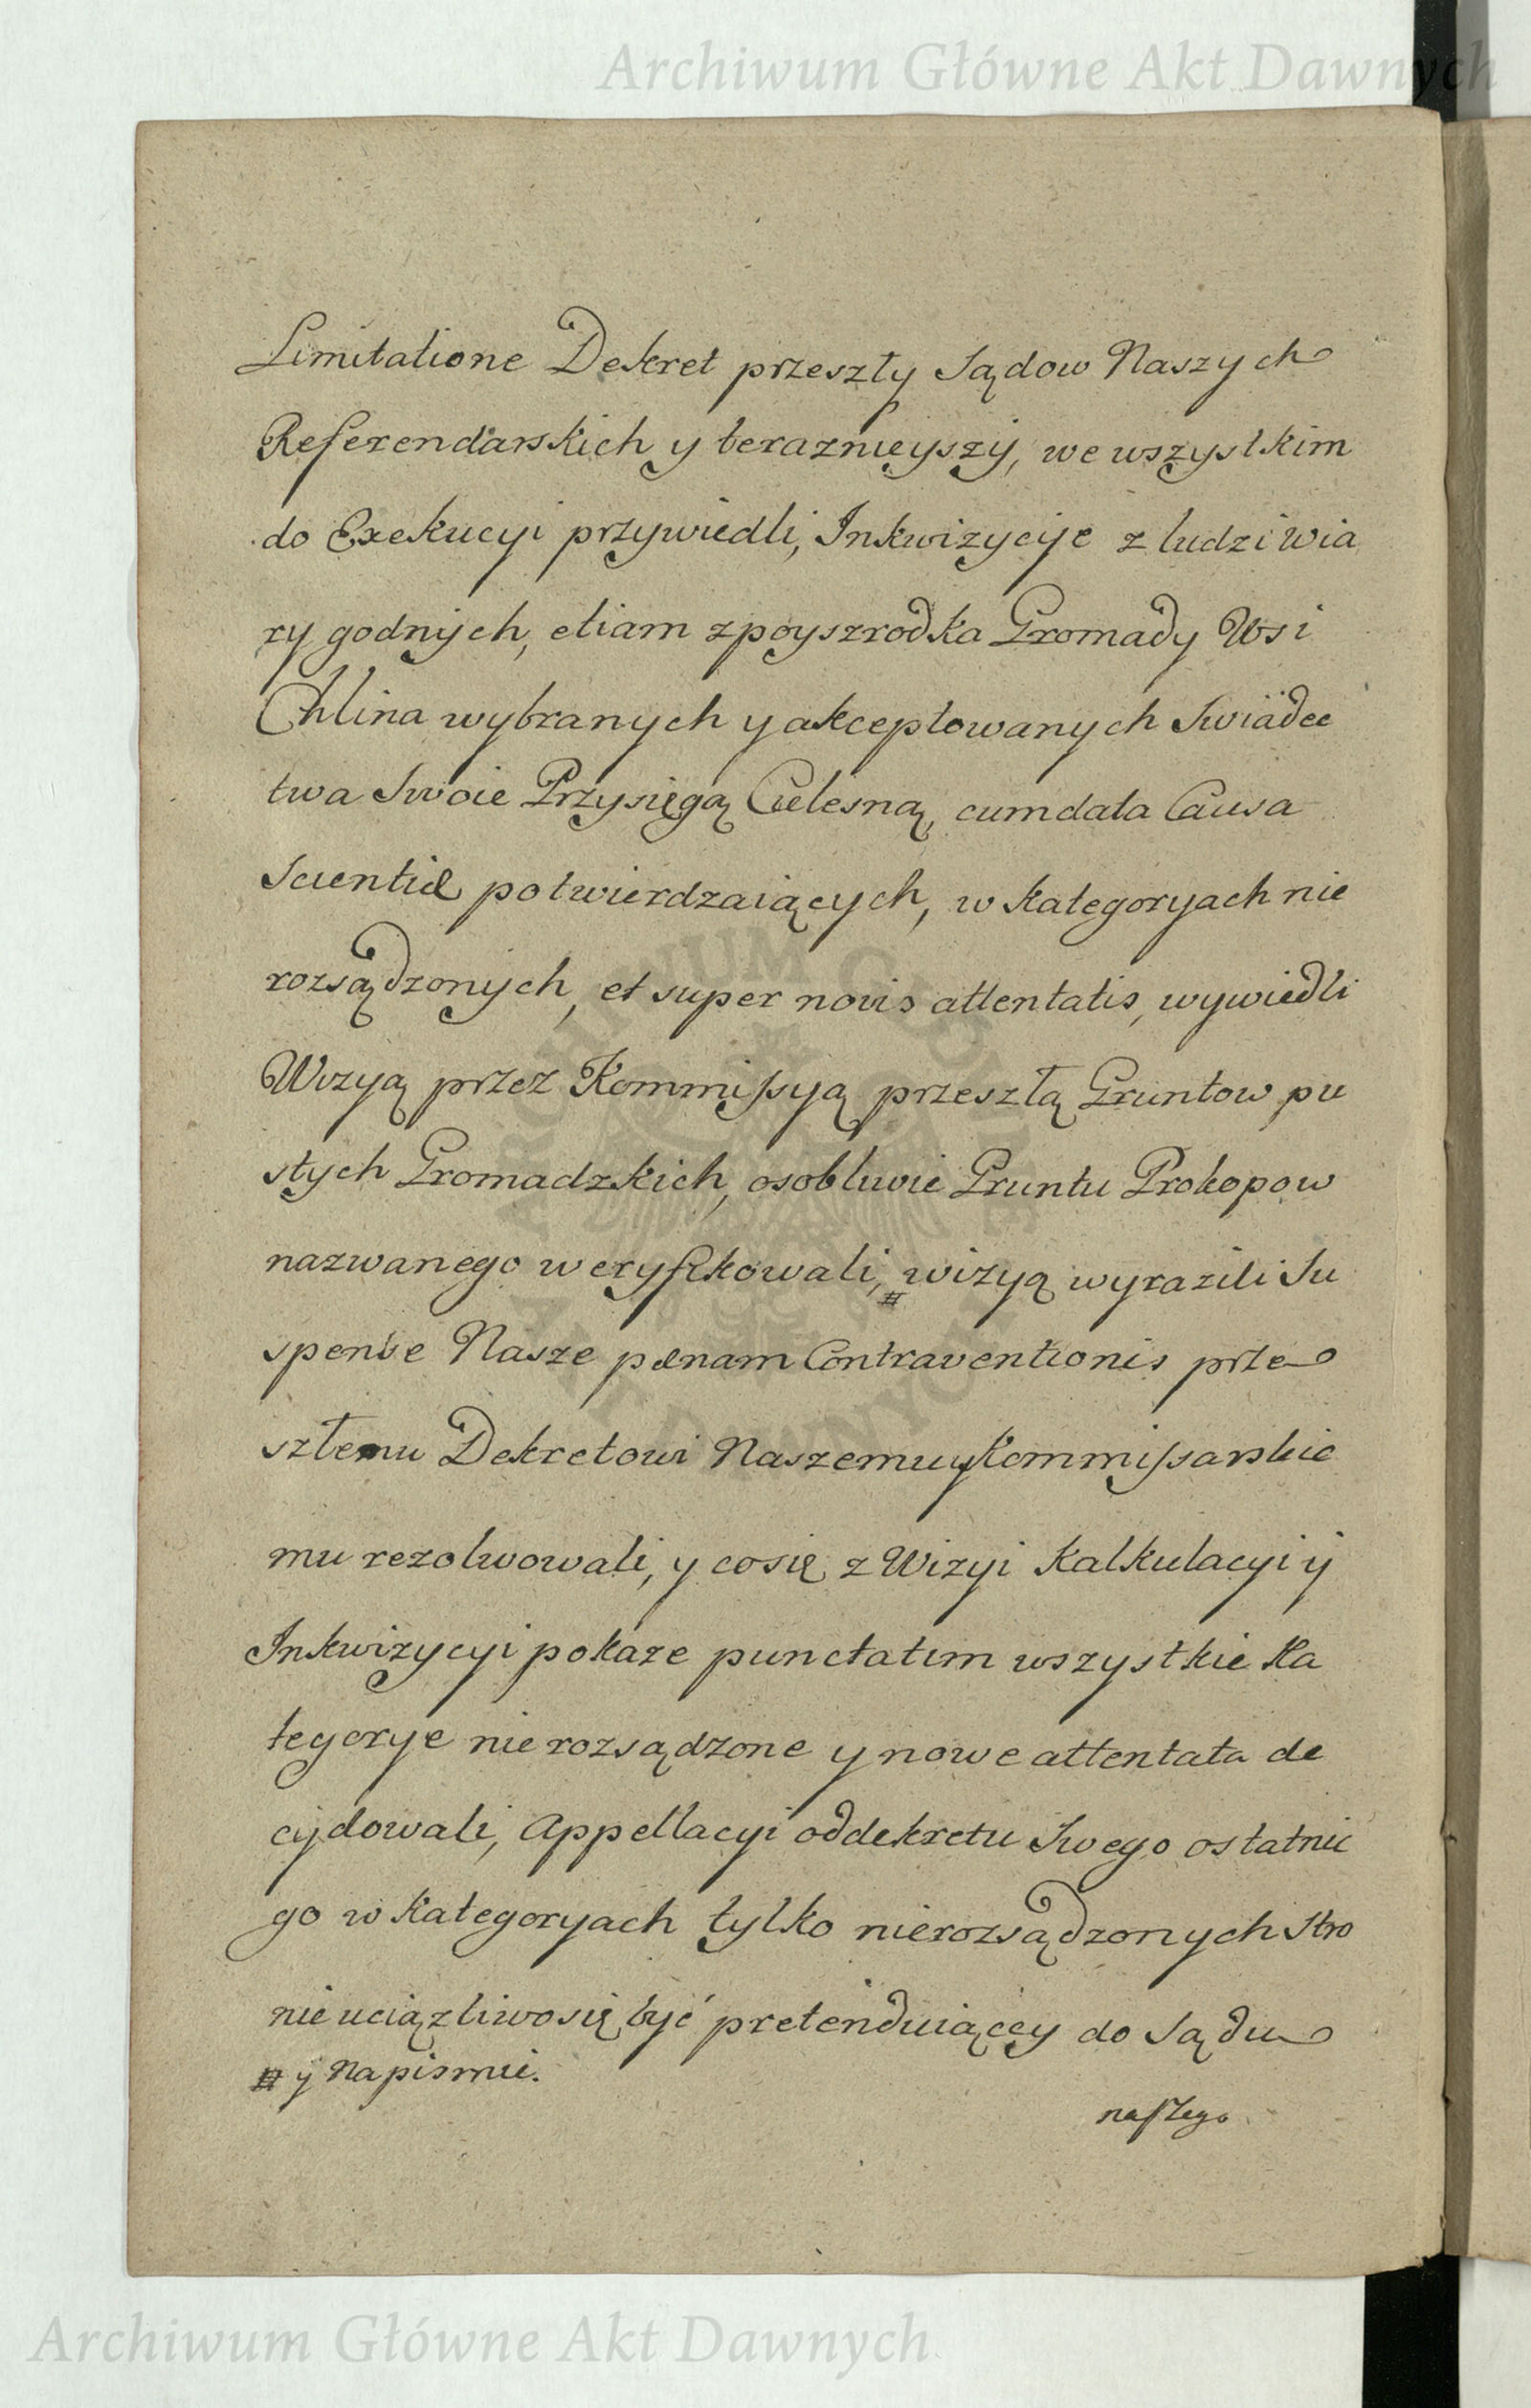 Archiwum Główne Akt Dawnych
Limitatione Dekret przeszły Sądow Naszych
Referendarskich y teraznieyszy, we wszystkim
do Exekucyi przywiedli, Inkwizycye z ludzi wia
ry godnych, etiam zpoyszrodka Gromady Wsi
Chlina wybranych y akceptowanych Swiadec
twa Swoie Przysięgą Cielesną, cum data Causa
Scientiæ potwierdzaiących, w kategoryach nie
rozsądzonych, et super novis attentatis, wywiedli
Wizyą przez Kommissyą przeszłą Gruntow pu
stych Gromadzkich, osobliwie Gruntu Prokopow
nazwanego weryfikowali, # wizyą wyrazili Su
spense Nasze pœnam Contraventionis prze
szłemu Dekretowi Naszemu y Kommissarskie
mu rezolwowali, y co się z Wizyi Kalkulacyi ÿ
Inkwizycyi pokaze punctatim wszystkie Ka
tegorye nie rozsądzone y nowe attentata de
cydowali, Appellacyi od dekretu Swego ostatnie
go w Kategoryach tylko nierozsądzonych Stro
nie uciązliwo się być pretenduiącey do Sądu
# y na pismie.
naszego
Archiwum Główne Akt Dawnych